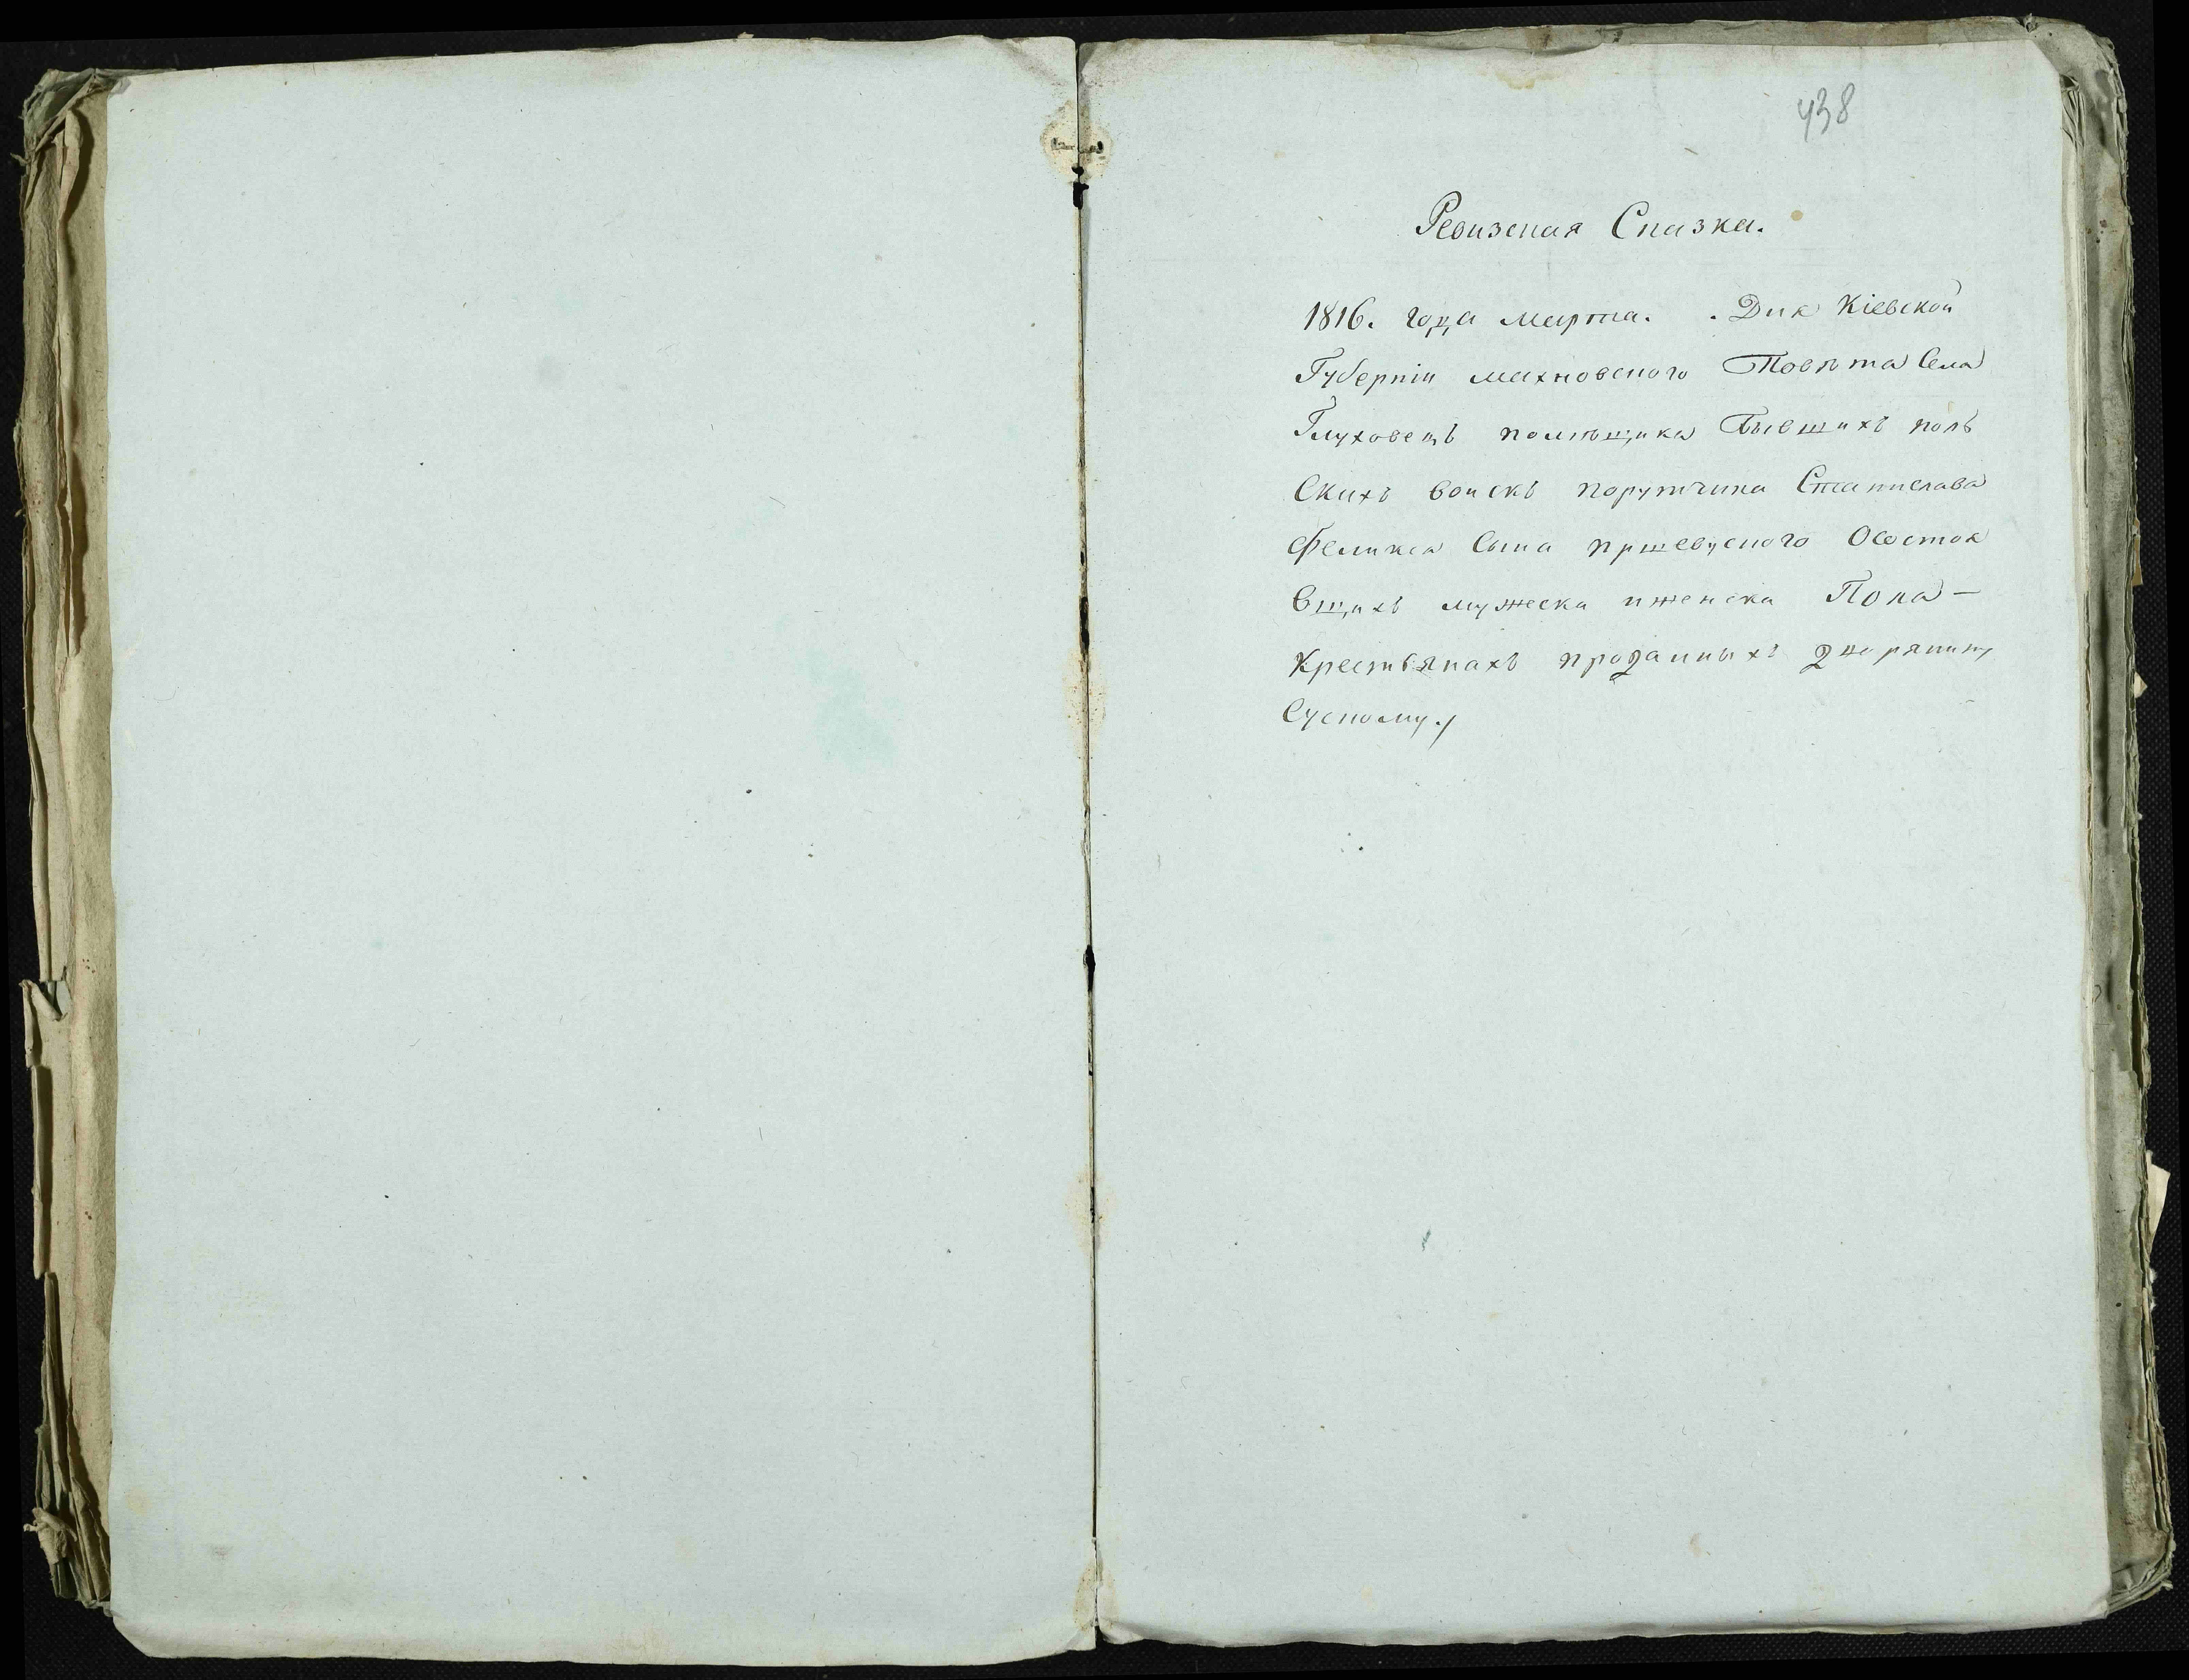 438
Ревизская Сказка.
1816. года марта. . Дня Кіевской
Губерніи махновского Повѣта Села
Глуховецъ помѣщика Бывшихъ поль
Скихъ войскъ порутчика Станислава
Феликса Сына пршевуского Осостоя
Вщихъ мужеска иженска Пола —
Крестьянахъ проданныхъ дворянину
Сускому ./